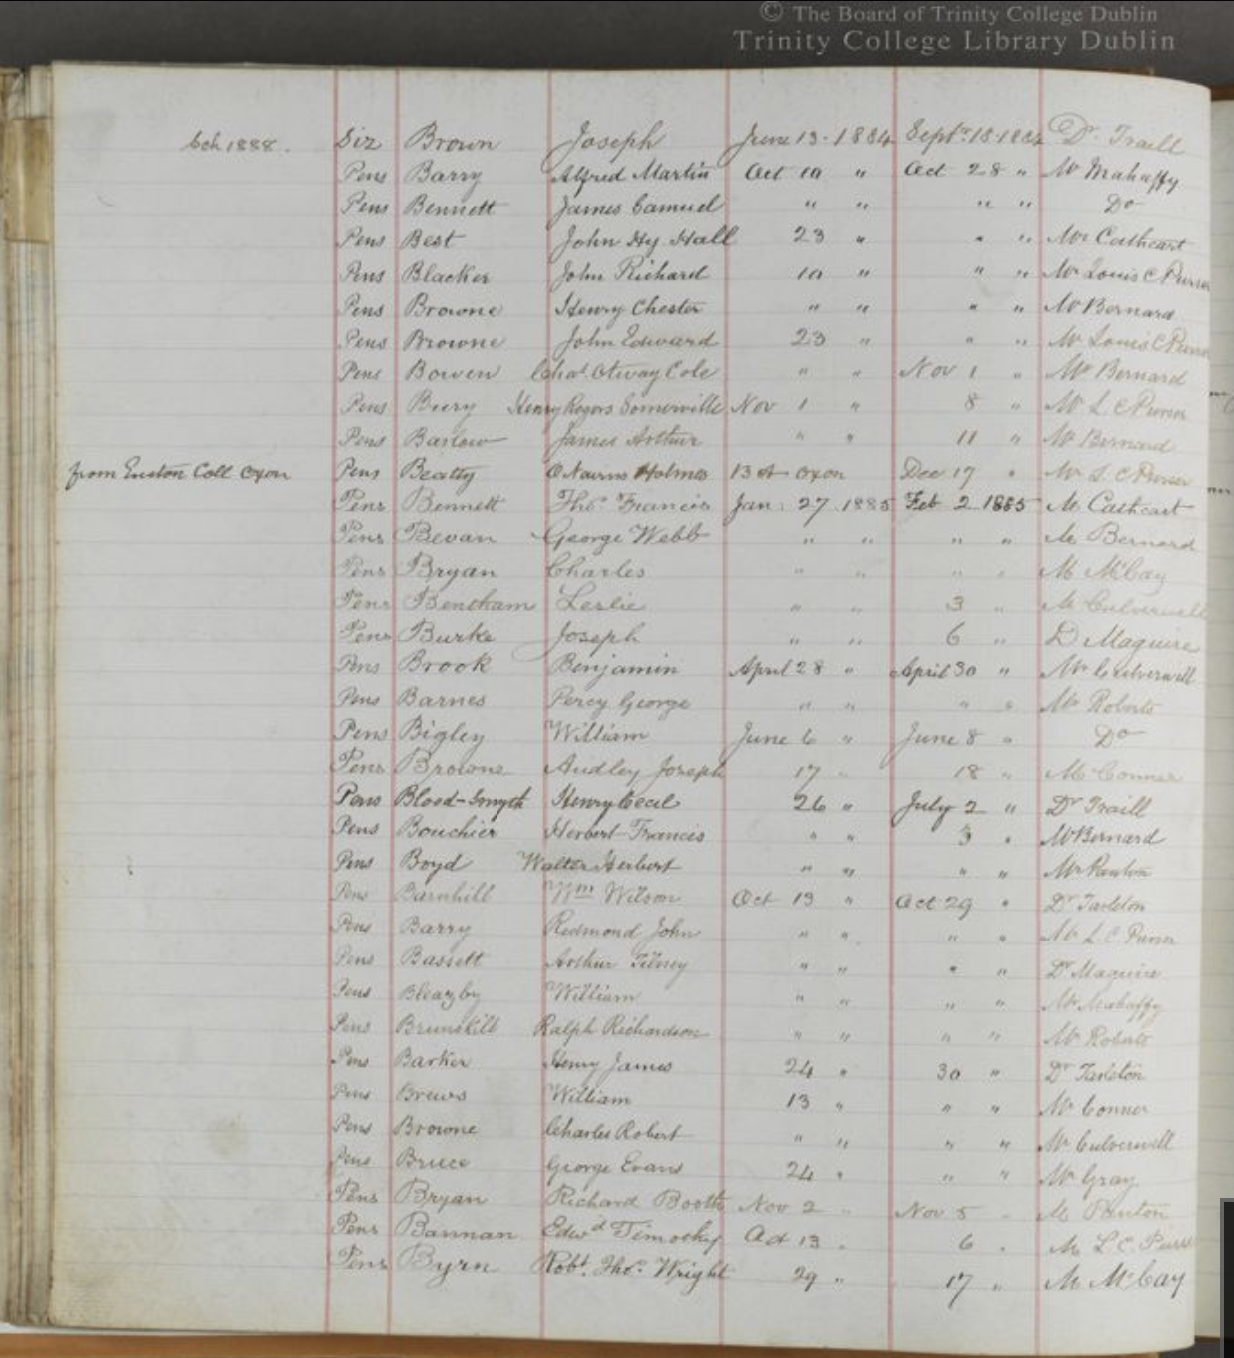 © The Board of Trinity College Dublin
Trinity College Library Dublin
Sch 1888. Siz Brown Joseph June 13 - 1884 Sept. 18 - 1884 Dr Traill
Pens Barry Alfred Martin Oct 10 " Oct 28 " Mr Mahaffy
Pens Bennett James Samuel " " " " Do
Pens Best John Hy. Hall 23 " " " Mr Cathcart
Pens Blacker John Richard 10 " " " Mr Louis C Purser
Pens Browne Henry Chester " " " " Mr Bernard
Pens Browne John Edward 23 " " " Mr Louis C Purser
Pens Bowen Chas. Otway Cole " " Nov 1 " Mr Bernard
Pens Bury Henry Rogers Somerville Nov 1 " 8 " Mr L C Purser
Pens Barlow James Arthur " " 11 " Mr Bernard
from Coll Oxon Pens Beatty Holmes 13 Oxon Dec 17 " Mr L C Purser
Pens Bennett Thos. Francis Jan. 27 1885 Feb 2 1885 Mr Cathcart
Pens Bevan George Webb " " " " Mr Bernard
Pens Bryan Charles " " " " Mr McCay
Pens Bentham Leslie " " 3 " Mr Culverwell
Pens Burke Joseph " " 6 " Dr Maguire
Pens Brook Benjamin April 28 " April 30 " Mr Culverwell
Pens Barnes Percy George " " " " Mr Roberts
Pens Bigley William June 6 " June 8 " Do
Pens Browne Audley Joseph 17 " 18 " Mr Conner
Pens Blood-Smyth Henry Cecil 26 " July 2 " Dr Traill
Pens Bouchier Herbert Francis " " 3 " Mr Bernard
Pens Boyd Walter Herbert " " " " Mr Panton
Pens Barnhill Wm Wilson Oct 13 " Oct 29 " Dr Tarleton
Pens Barry Redmond John " " " " Mr L C Purser
Pens Bassett Arthur Tilney " " " " Dr Maguire
Pens Bleazby William " " " " Mr Mahaffy
Pens Brunskill Ralph Richardson " " " " Mr Roberts
Pens Barker Henry James 24 " 30 " Dr Tarleton
Pens Brews William 13 " " " Mr Conner
Pens Browne Charles Robert " " " " Mr Culverwell
Pens Bruce George Evans 24 " " " Mr Gray
Pens Bryan Richard Booth Nov 2 " Nov 5 " Mr Panton
Pens Bannan Edwd Timothy Oct 13 " 6 " Mr L C. Purser
Pens Byrn Robt. Thos. Wright 29 " 17 " Mr McCay